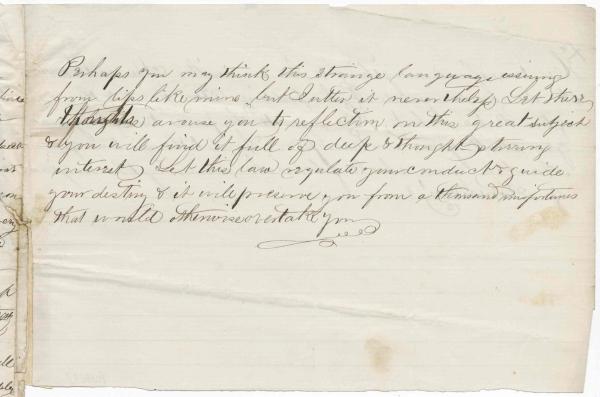 Perhaps you may think this strange language issuing
from lips like mine, but I utter it never the less Let these
thoughts arouse you to reflection on this great subject
& you will find it full of deep & thought stirring
interest, Let this law regulate your conduct & guide
your destiny & it will preserve you from a thousand misfortunes
that would otherwise overtake you